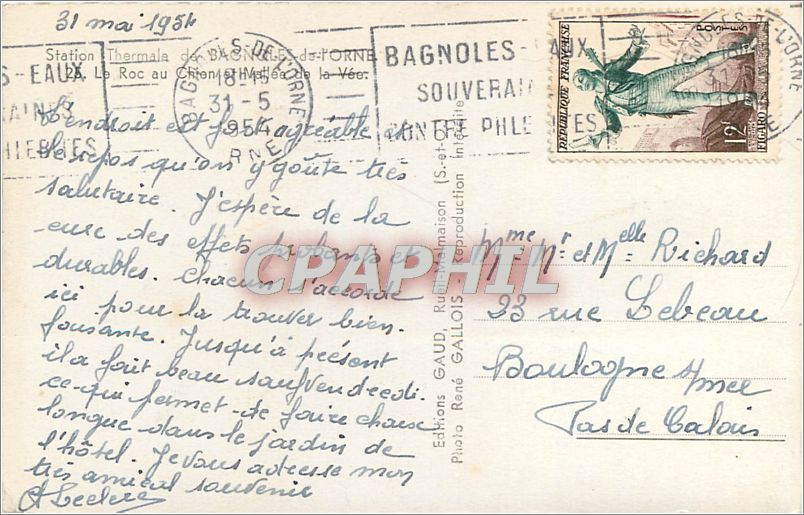 31 mai 1954
Station Thermale de BAGNOLES-de-l'ORNE
Le Roc au Chien et Vallée de la Vée.
S - EAUX
RAINES
HLEBITES
BAGNOLES DE L'ORNE
18H15
31-5
1954
ORNE
BAGNOLES -
SOUVERAI
CONTRE PHLE
EAUX
TES
REPUBLIQUE FRANÇAISE
POSTES
12F
FIGARO
L'endroit est fort agréable et
le repos qu'on y goûte très
salutaire. J'espère de la
cure des effets probants et
durables. Chacun s'accorde
ici pour la trouver bien-
faisante. Jusqu'à présent
il a fait beau sauf vendredi.
ce qui permet de faire chaise
longue dans le jardin de
l'hôtel. Je vous adresse mon
très amical souvenir
A Leclerc
Editions GAUD, Rueil-Malmaison (S.-et-
Photo René GALLOIS - Reproduction interdite
CPAPHIL
Mme Mr et Melle Richard
93 rue Lebeau
Boulogne s/mer
Pas de Calais